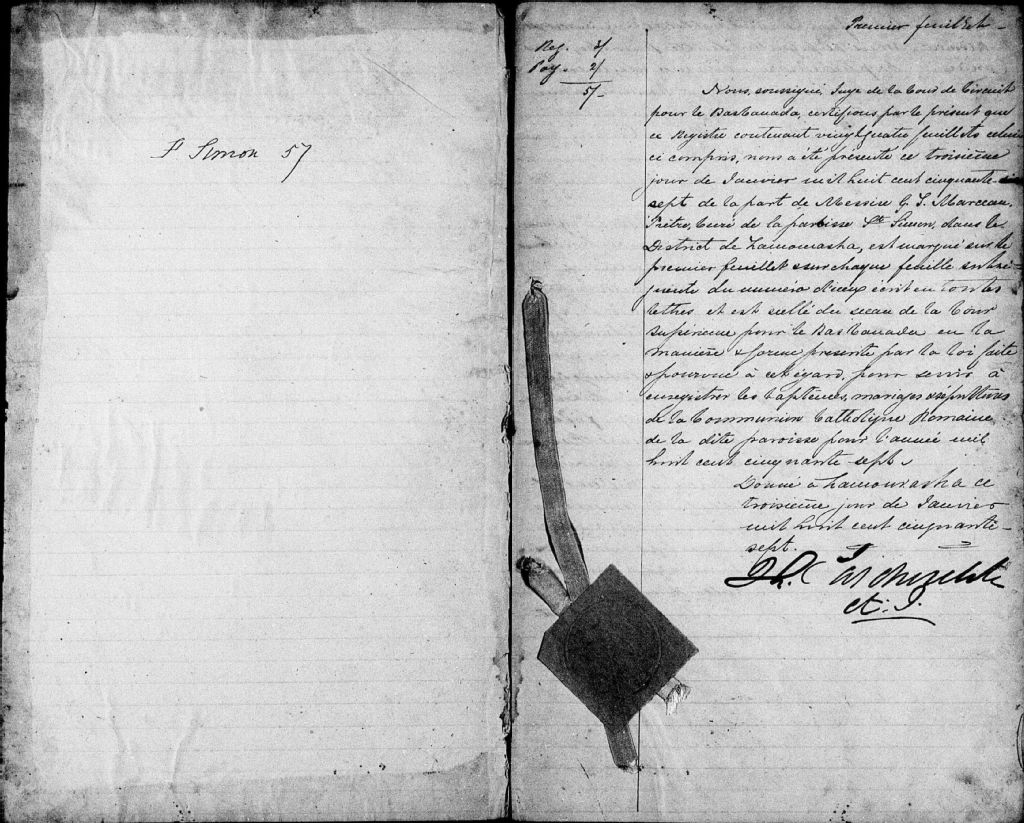 St Simon 57
Premier feuillet
Reg. 3/
Pay. 2/
5/-
Nous, soussigné, Juge de la Cour de Circuit
pour le Bas Canada, certifions par le présent que
ce Registre contenant vingt quatre feuillets celui
ci compris, nous a été présenté ce troisième
jour de Janvier mil huit cent cinquante
sept de la part de Messire Marceau,
Prêtre, Curé de la paroisse St Simon, dans le
District de Kamouraska, est marqué sur le
premier feuillet & sur chaque feuille subsé=
quente du numéro d'iceux écrit en toutes
lettres et est scellé du sceau de la Cour
Supérieure pour le Bas Canada en la
manière & forme presente par la loi faite
& pourvue à cet égard, pour servir à
enregistrer les baptêmes, mariages & sépultures
de la Communion Catholique Romaine
de la dite paroisse pour l'année mil
huit cent cinquante sept.
Donné à Kamouraska ce
troisième jour de Janvier
mil huit cent cinquante-
sept.